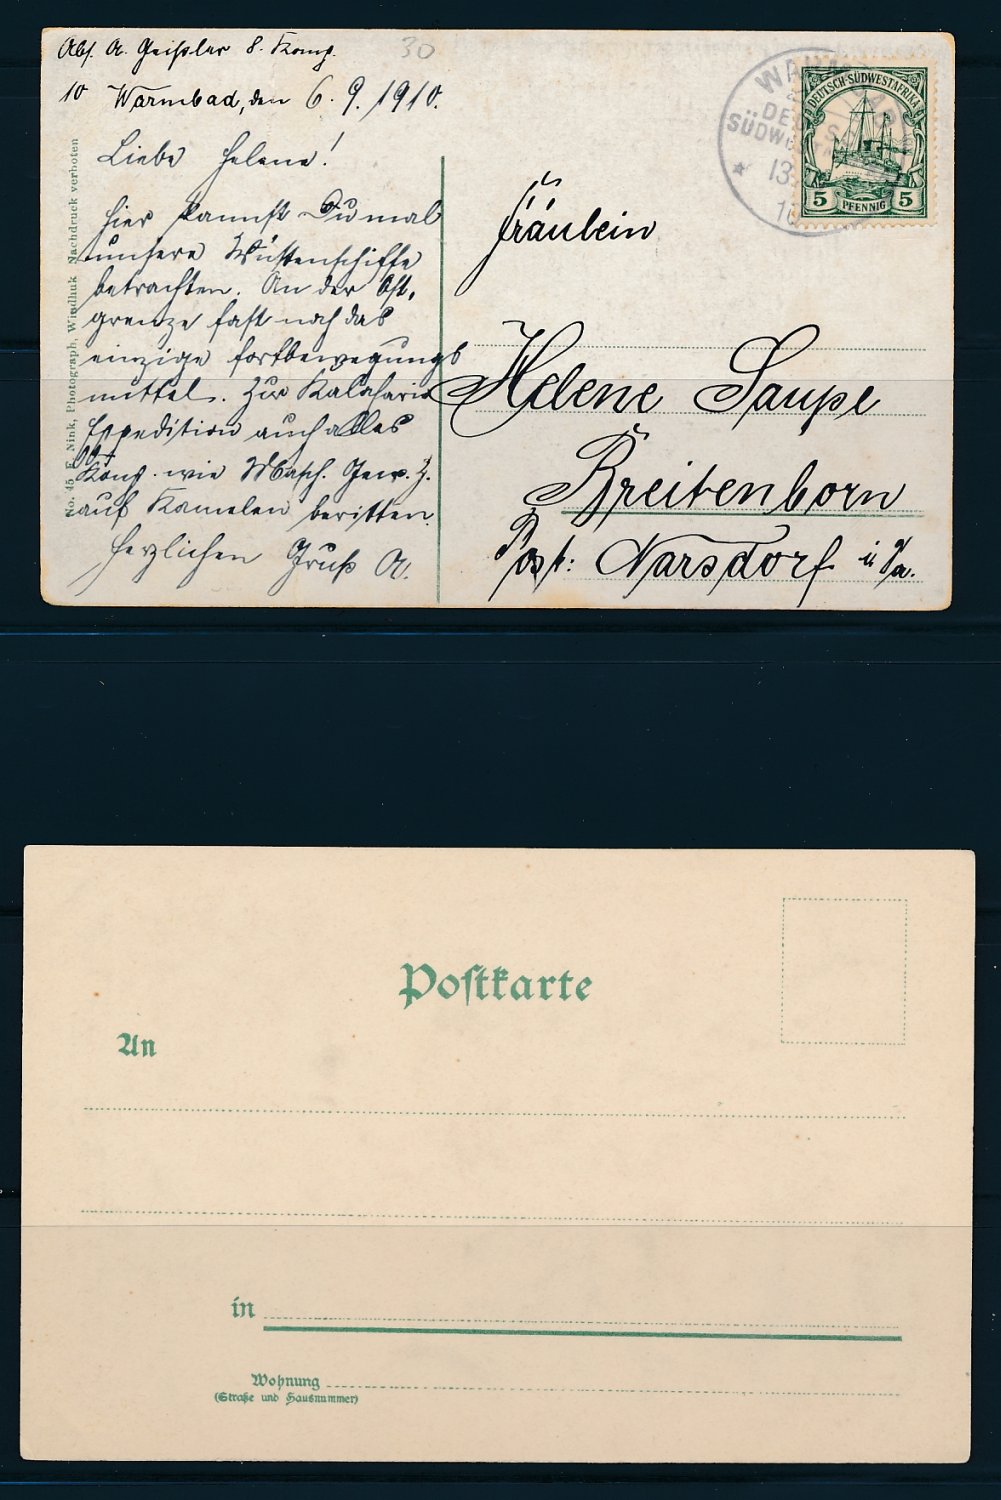 Abs. A. Geißler 8. Komp.
30
10 Warmbad, den 6. 9. 1910.
Liebe Helene!
Hier kannst Du mal
unsere Wüstenschiffe
betrachten. An der Ost-
grenze fast noch das
einzige Fortbewegungs
mittel. Zur Kalahari
Expedition auch alles
wie Masch. Gew. Z.
auf Kamelen beritten.
Herzlichen Gruß A.
No. 45 F. Nink, Photograph, Windhuk Nachdruck verboten
WARMBAD
SÜDWEST
13
10
DEUTSCH-SÜDWESTAFRIKA
5 PFENNIG 5
Fräulein
Helene Saupe
Breitenborn
Post: Narsdorf i/Sa.
Postkarte
An
in
Wohnung
(Straße und Hausnummer)